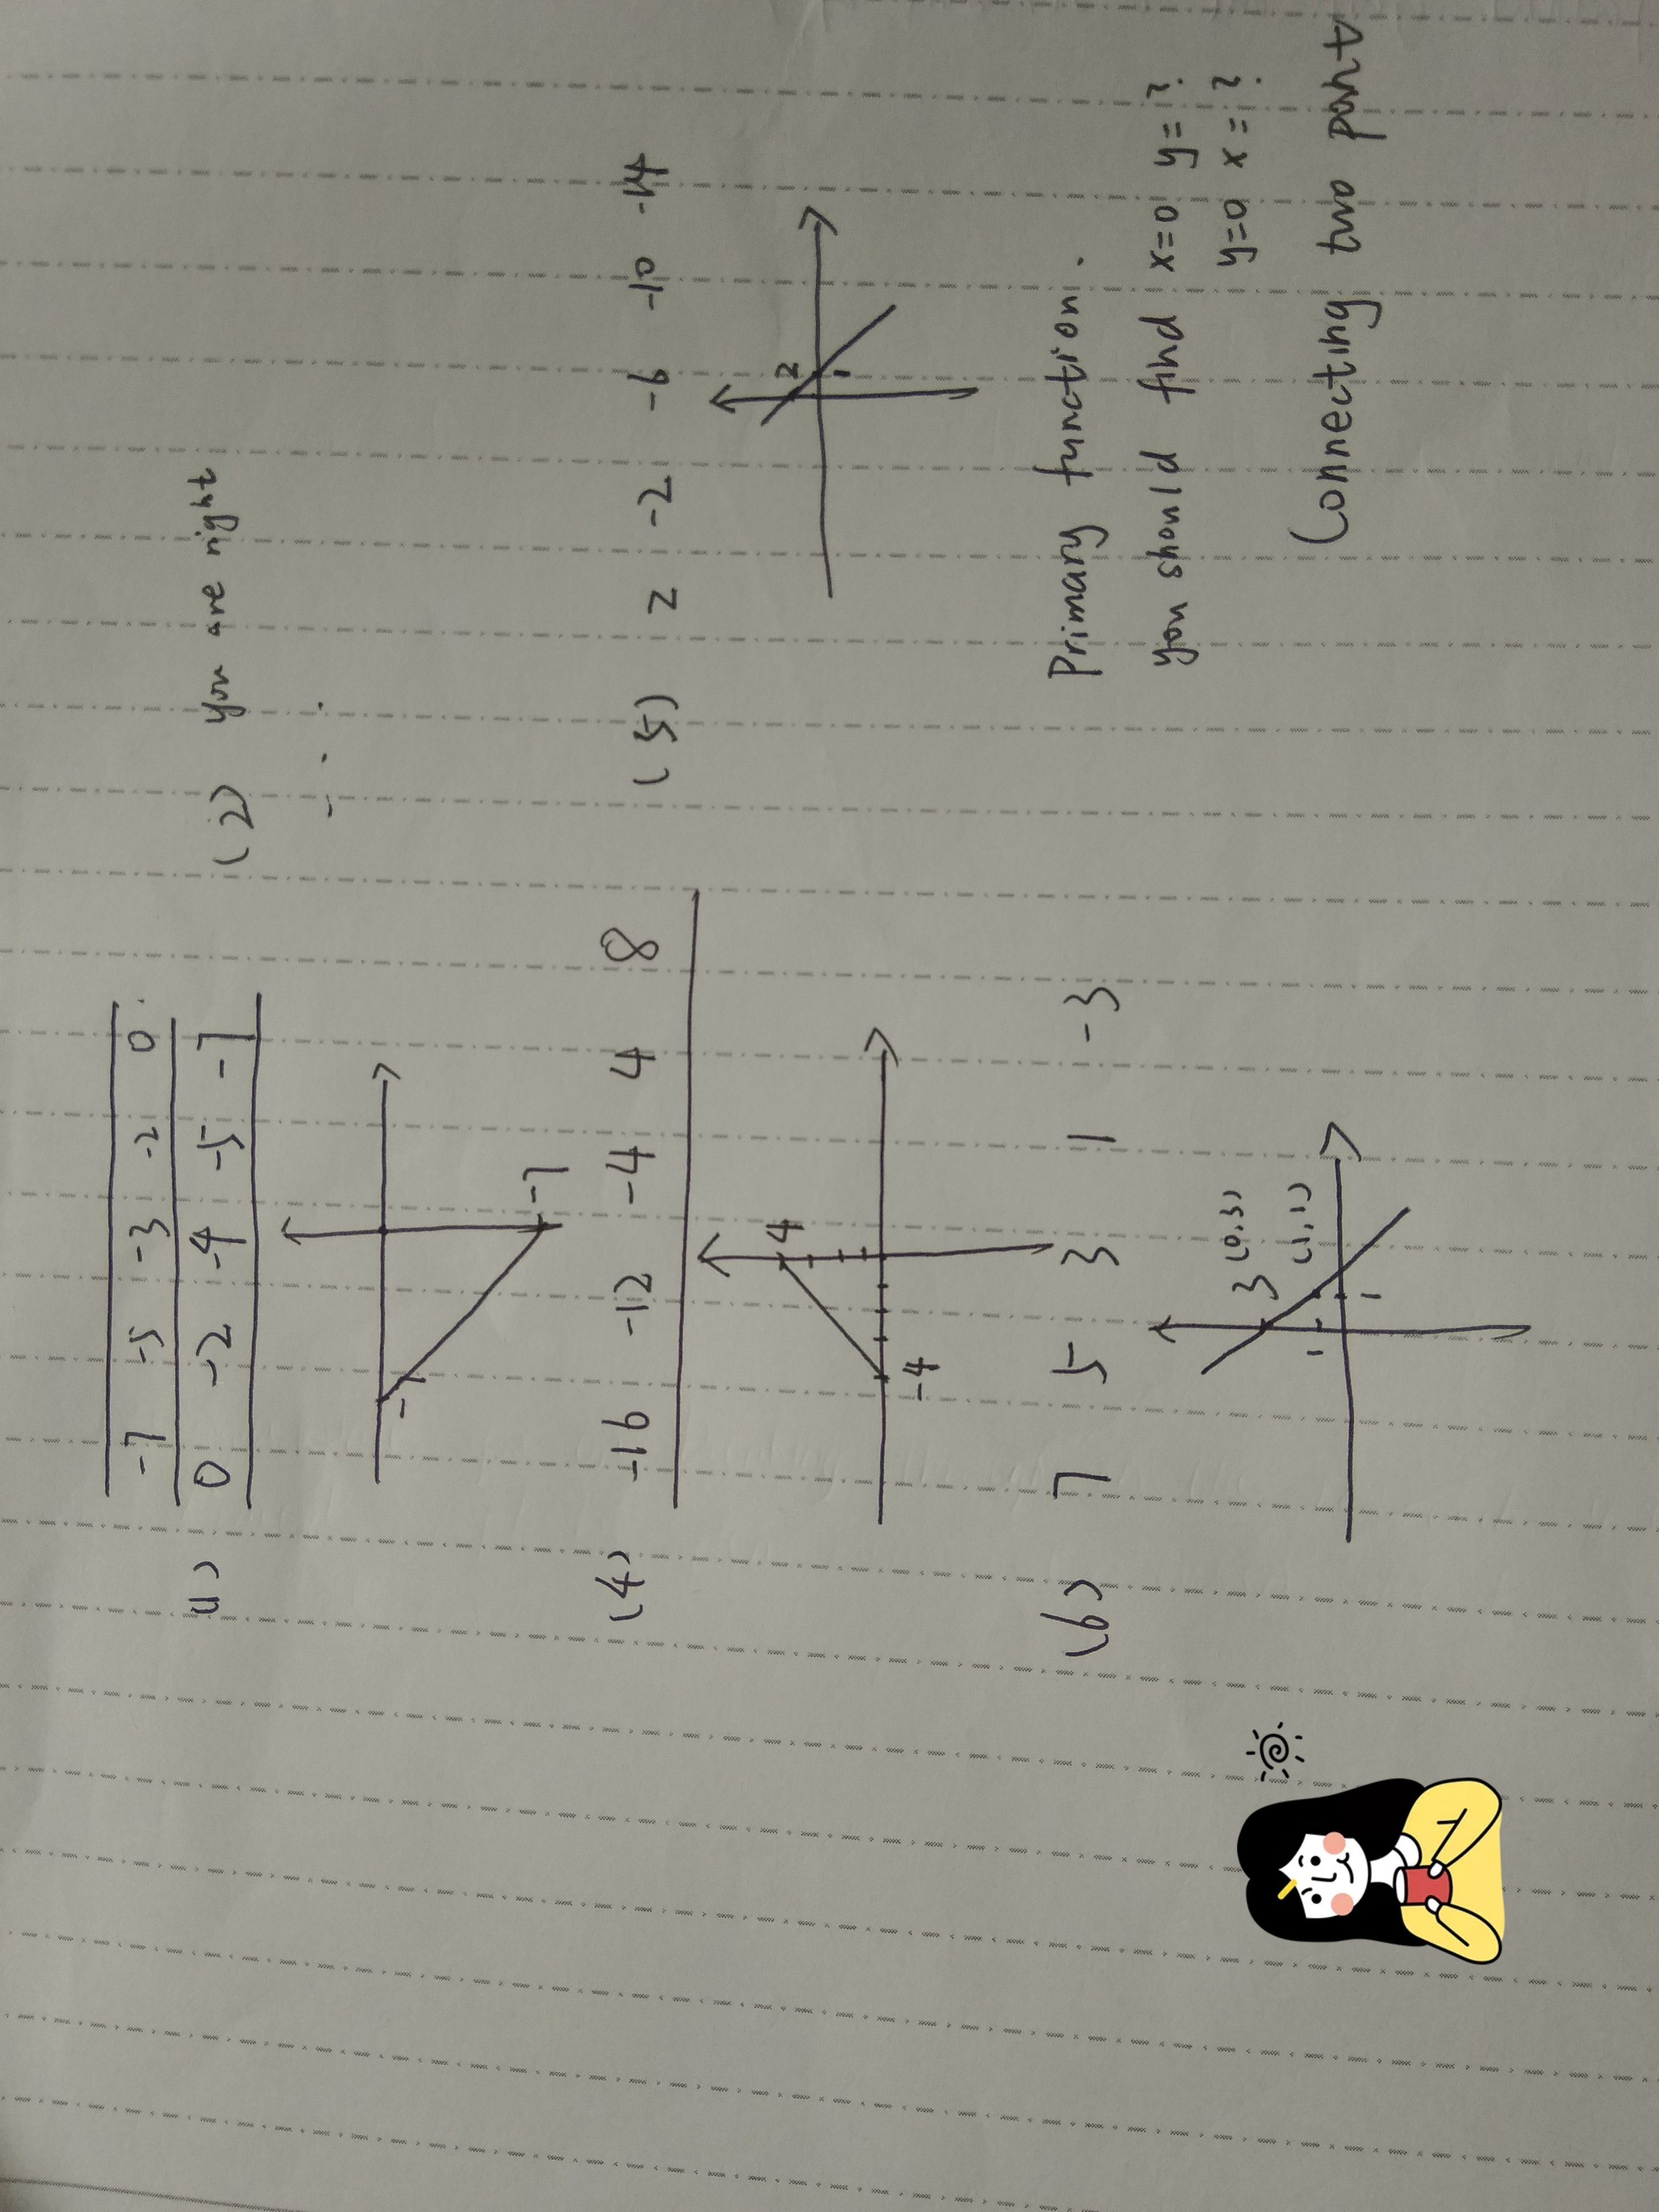 (1)
-7 -5 -3 -2 0
0 -2 -4 -5 -7
-7
-7
(2) you are right
(4) -16 -12 -4 4 8
4
-4
(5) 2 -2 -6 -10 -14
2
1
(6) 7 5 3 1 -3
3 (0,3)
(1,1)
1
1
Primary function.
you should find x=0 y=?
y=0 x=?
Connecting two